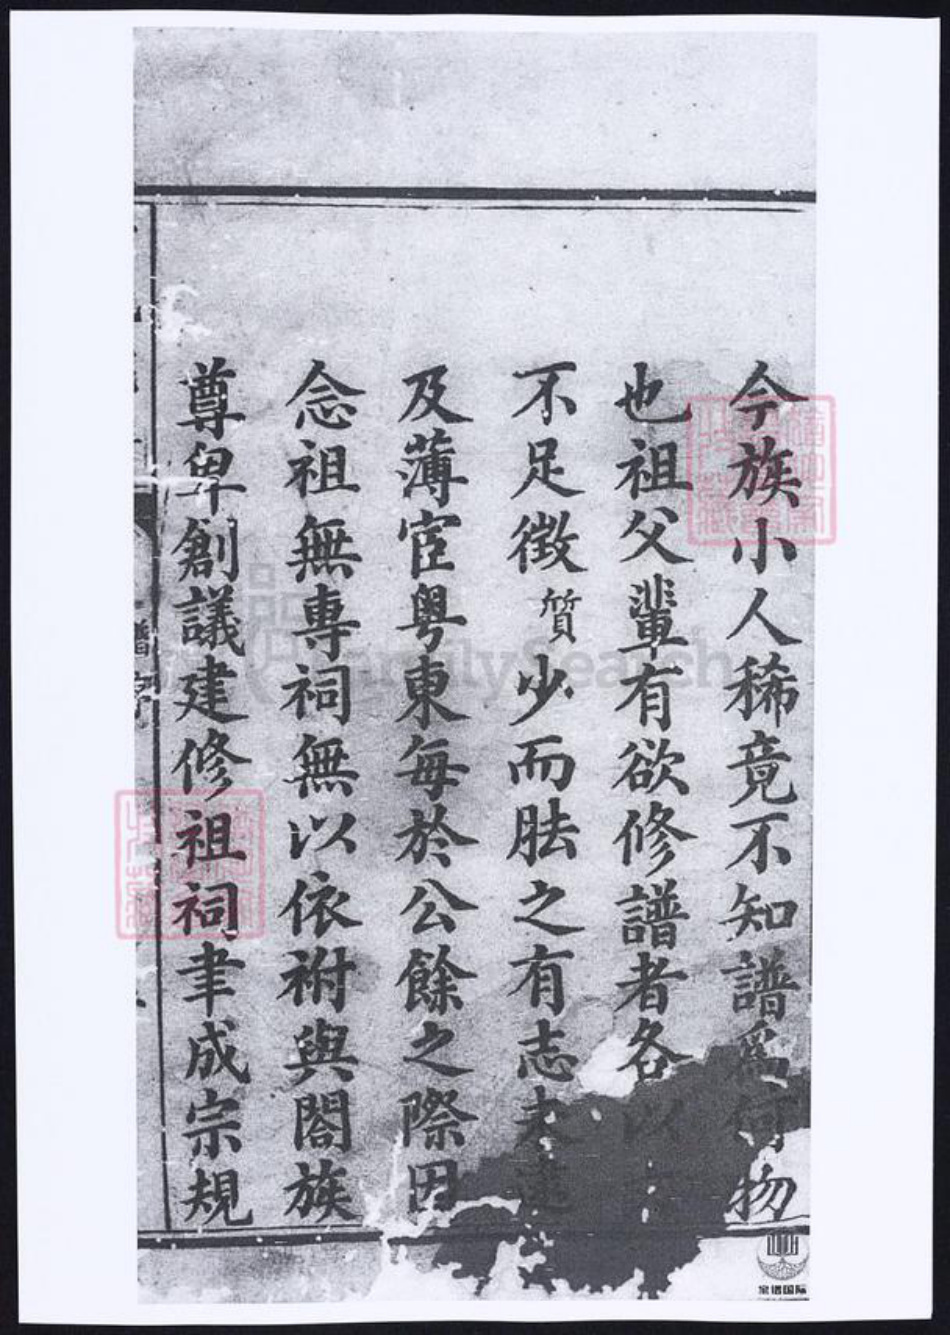 今族小人稀竟不知譜為何物
也祖父輩有欲修譜者各以
不足徵質少而胠之有志未逮
及薄宦粵東每於公餘之際因
念祖無專祠無以依祔與閤族
尊卑創議建修祖祠聿成宗規
譜序
FamilySearch
家谱国际